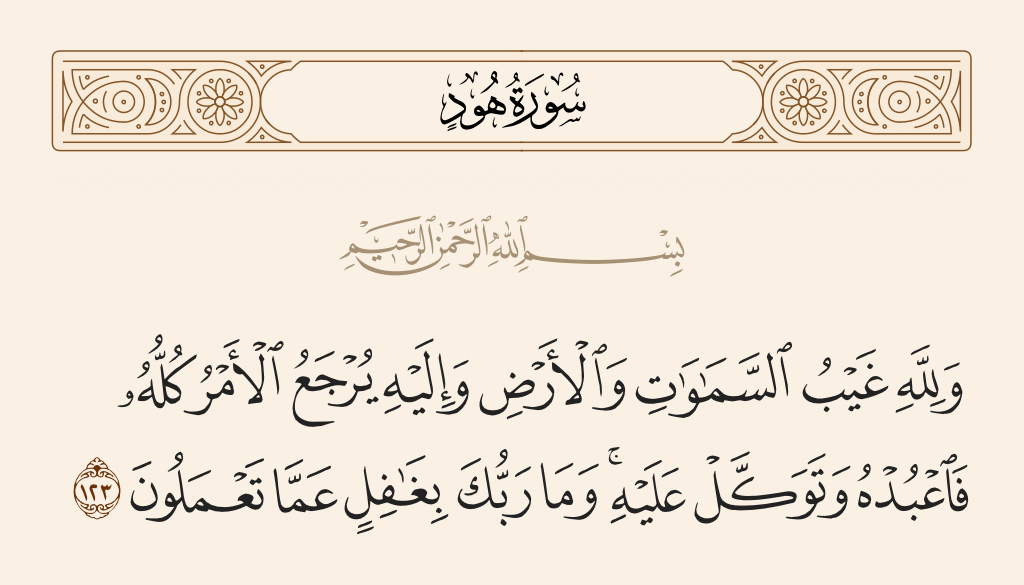 سُورَةُ هُودٍ
بِسْمِ ٱللَّهِ ٱلرَّحْمَٰنِ ٱلرَّحِيمِ
وَلِلَّهِ غَيْبُ ٱلسَّمَٰوَٰتِ وَٱلْأَرْضِ وَإِلَيْهِ يُرْجَعُ ٱلْأَمْرُ كُلُّهُۥ
فَٱعْبُدْهُ وَتَوَكَّلْ عَلَيْهِ ۚ وَمَا رَبُّكَ بِغَٰفِلٍ عَمَّا تَعْمَلُونَ ١٢٣